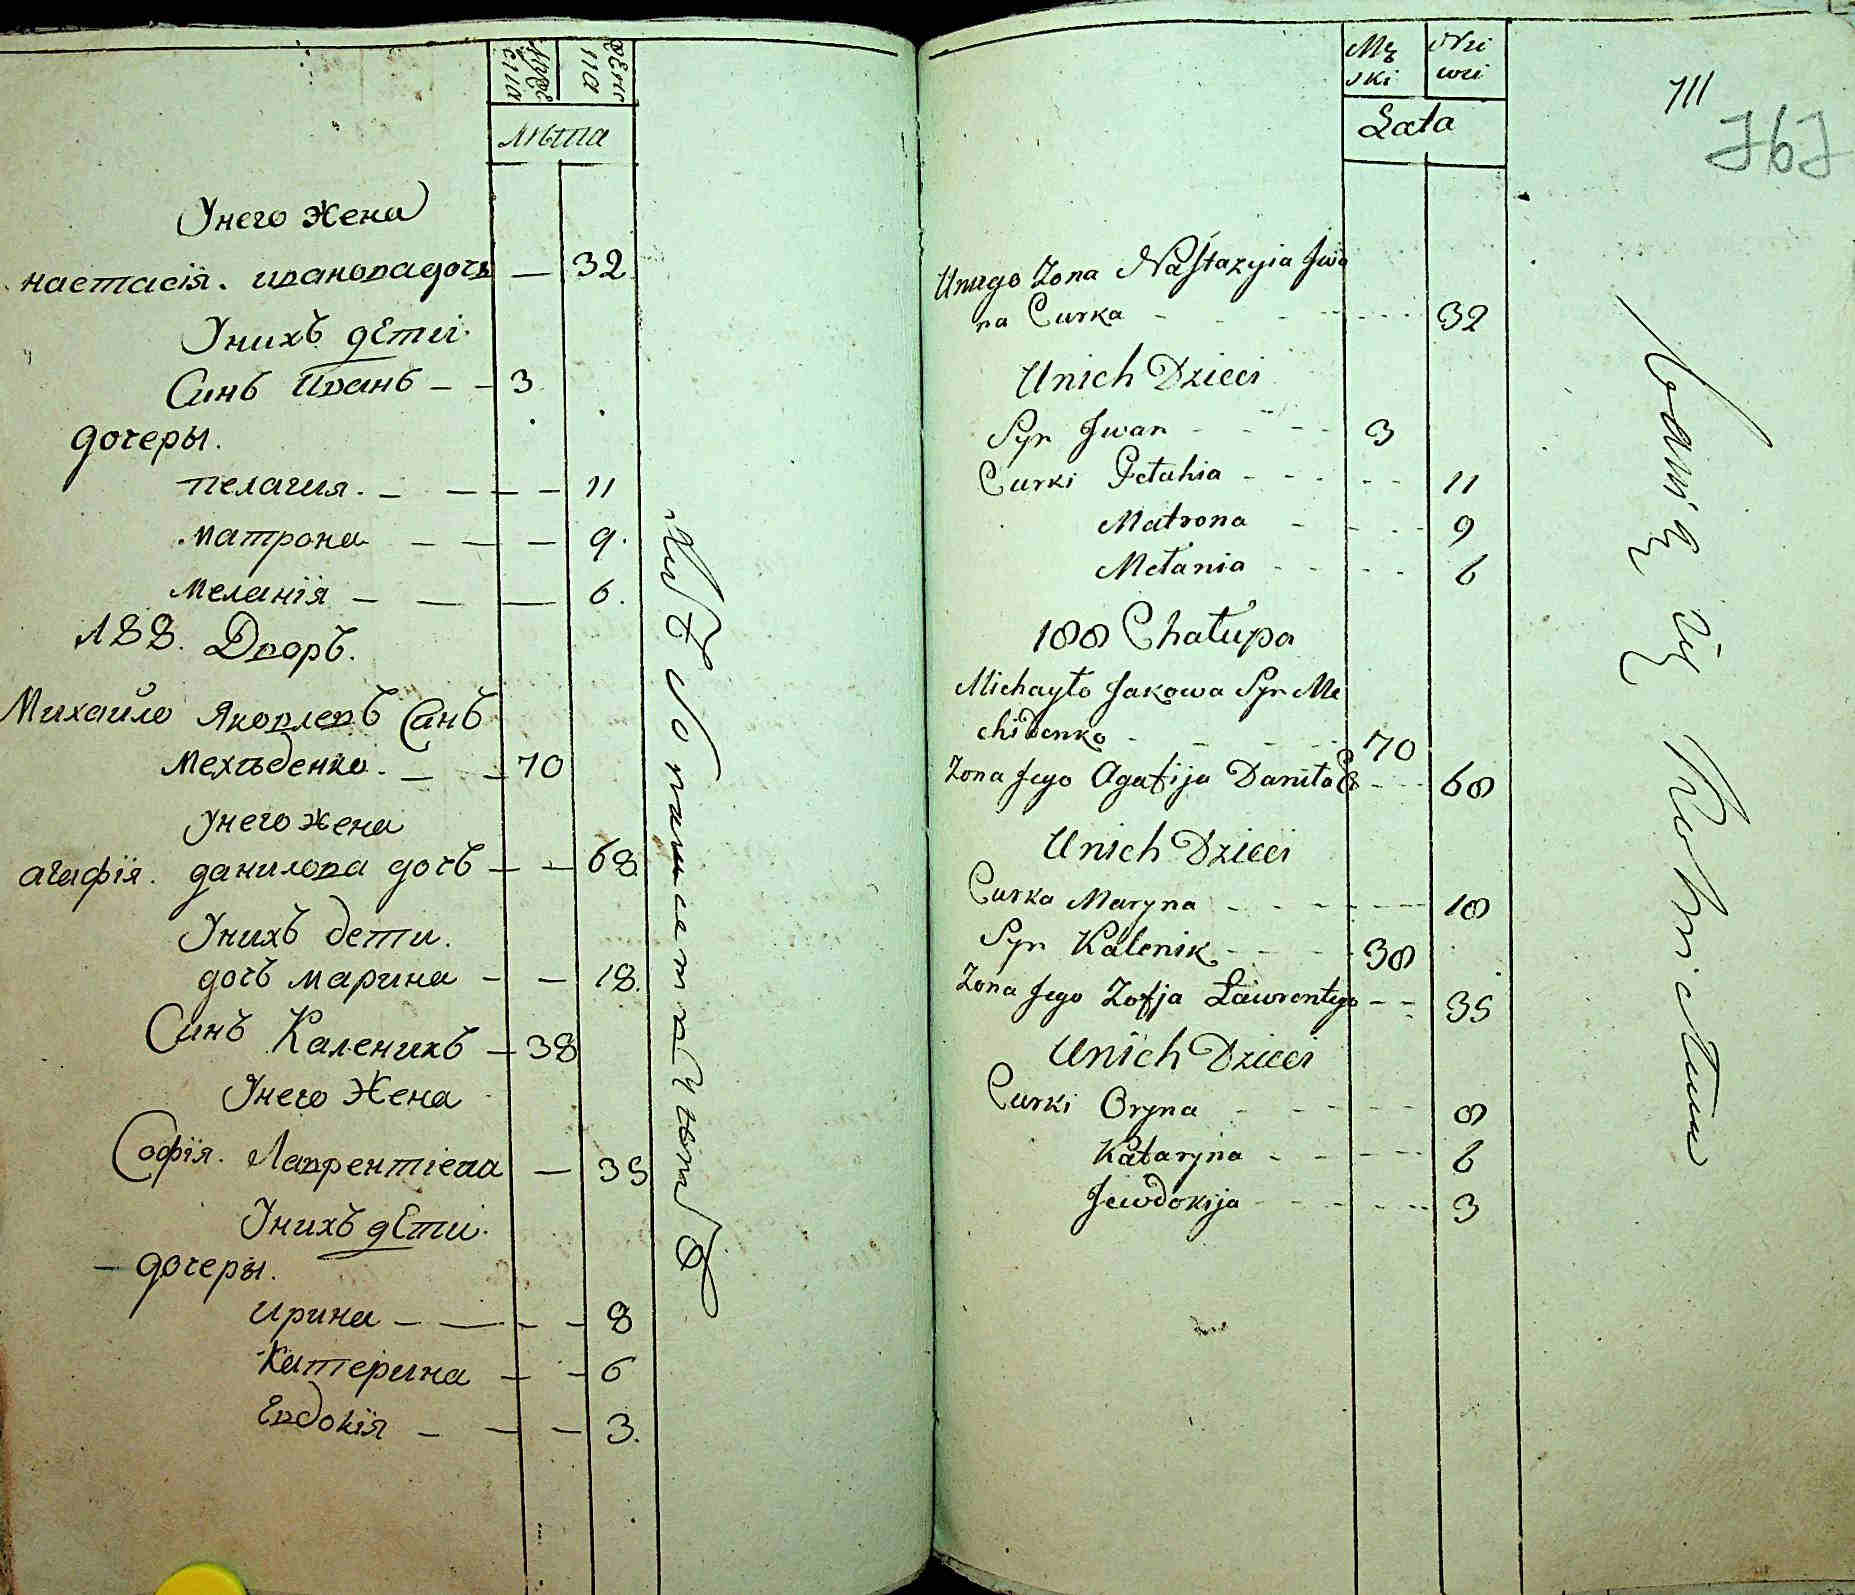 Мужеска
Женска
Лѣта
Унего жена
настасія. иванова дочь — 32
Унихъ дети
Синъ иванъ — — 3
дочеры.
пелагия. — — — — 11
матрона — — — 9.
меланія — — — 6.
188. Дворъ.
Михайло Яковлевъ Синъ
мехъденко. — — 70
унего жена
агафія. данилова дочъ — — 68
Унихъ дети.
дочъ марина — — 18.
Синъ Каленикъ — 38
Унего Жена
Софія. Лаврентіева — 35
Унихъ дети.
— дочеры.
ирина — — — — 8
Катерина — — 6
Евдокія — — — 3.
Męski
Lata
711
767
Uniego Zona Nastazyia Jwa
na Curka 32
Unich Dzieci
Syn Jwan 3
Curki Pełahia 11
Matrona 9
Mełania 6
188 Chałupa
Michayło Jakowa Syn Me
chidenko 70
Zona Jego Agafija Daniła C 68
Unich Dzieci
Curka Maryna 18
Syn Kalenik 38
Zona Jego Zofja Lawrentego 35
Unich Dzieci
Curki Oryna 8
Kataryna 6
Jewdokija 3